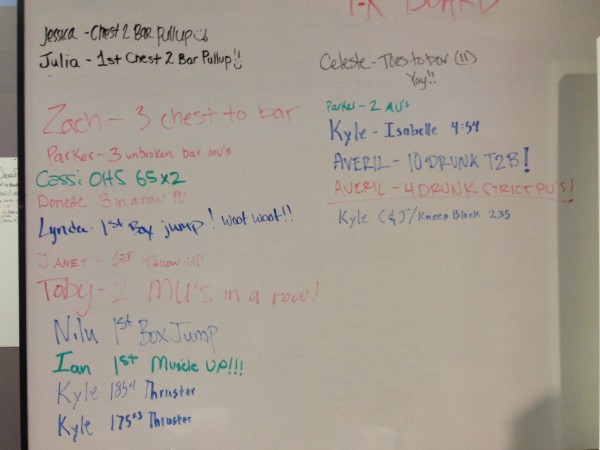 PR BOARD
Jessica - Chest 2 Bar Pullup
Julia - 1st Chest 2 Bar Pullup!!
Zach - 3 chest to bar
Parker - 3 unbroken bar mu's
Cassi OHS 65x2
Donette 3 in a row PU
Lynda - 1st Box jump! woot woot!!
JANET - 1ST THROW-UP
Toby - 2 MU'S in a row!
Nilu 1st Box Jump
Ian 1st Muscle UP!!!
Kyle 185x1 Thruster
Kyle 175x3 Thruster
Celeste - Toes to bar (11)
Yay!!
Parker - 2 MU's
Kyle - Isabelle 4:54
AVERIL - 10 DRUNK T2B!
AVERIL - 4 DRUNK STRICT PU'S!
Kyle C&J/Kneep Block 235